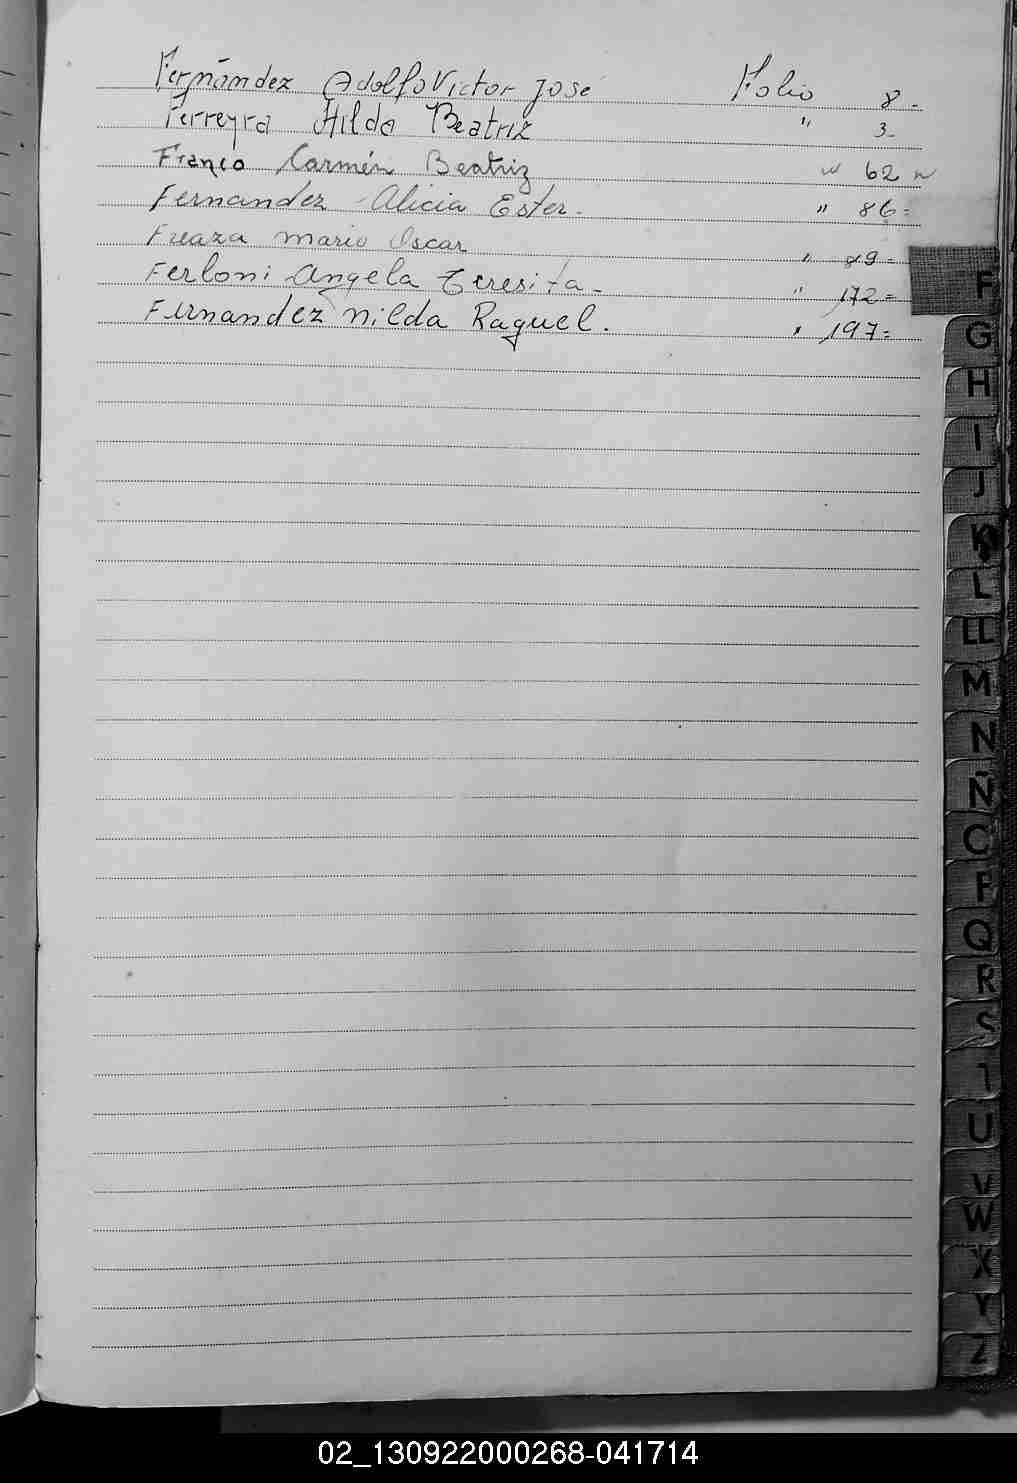 Fernández Adolfo Victor José Folio 8-
Ferreyra Hilda Beatriz " 3-
Franco Carmén Beatriz " 62 "
Fernandez Alicia Ester. " 86=
Mario Oscar " 89=
Ferloni Angela Teresita- " 172=
Fernandez Nilda Raquel. " 197=
F
G
H
I
J
K
L
LL
M
N
Ñ
O
P
Q
R
S
U
V
W
X
Y
Z
02_130922000268-041714